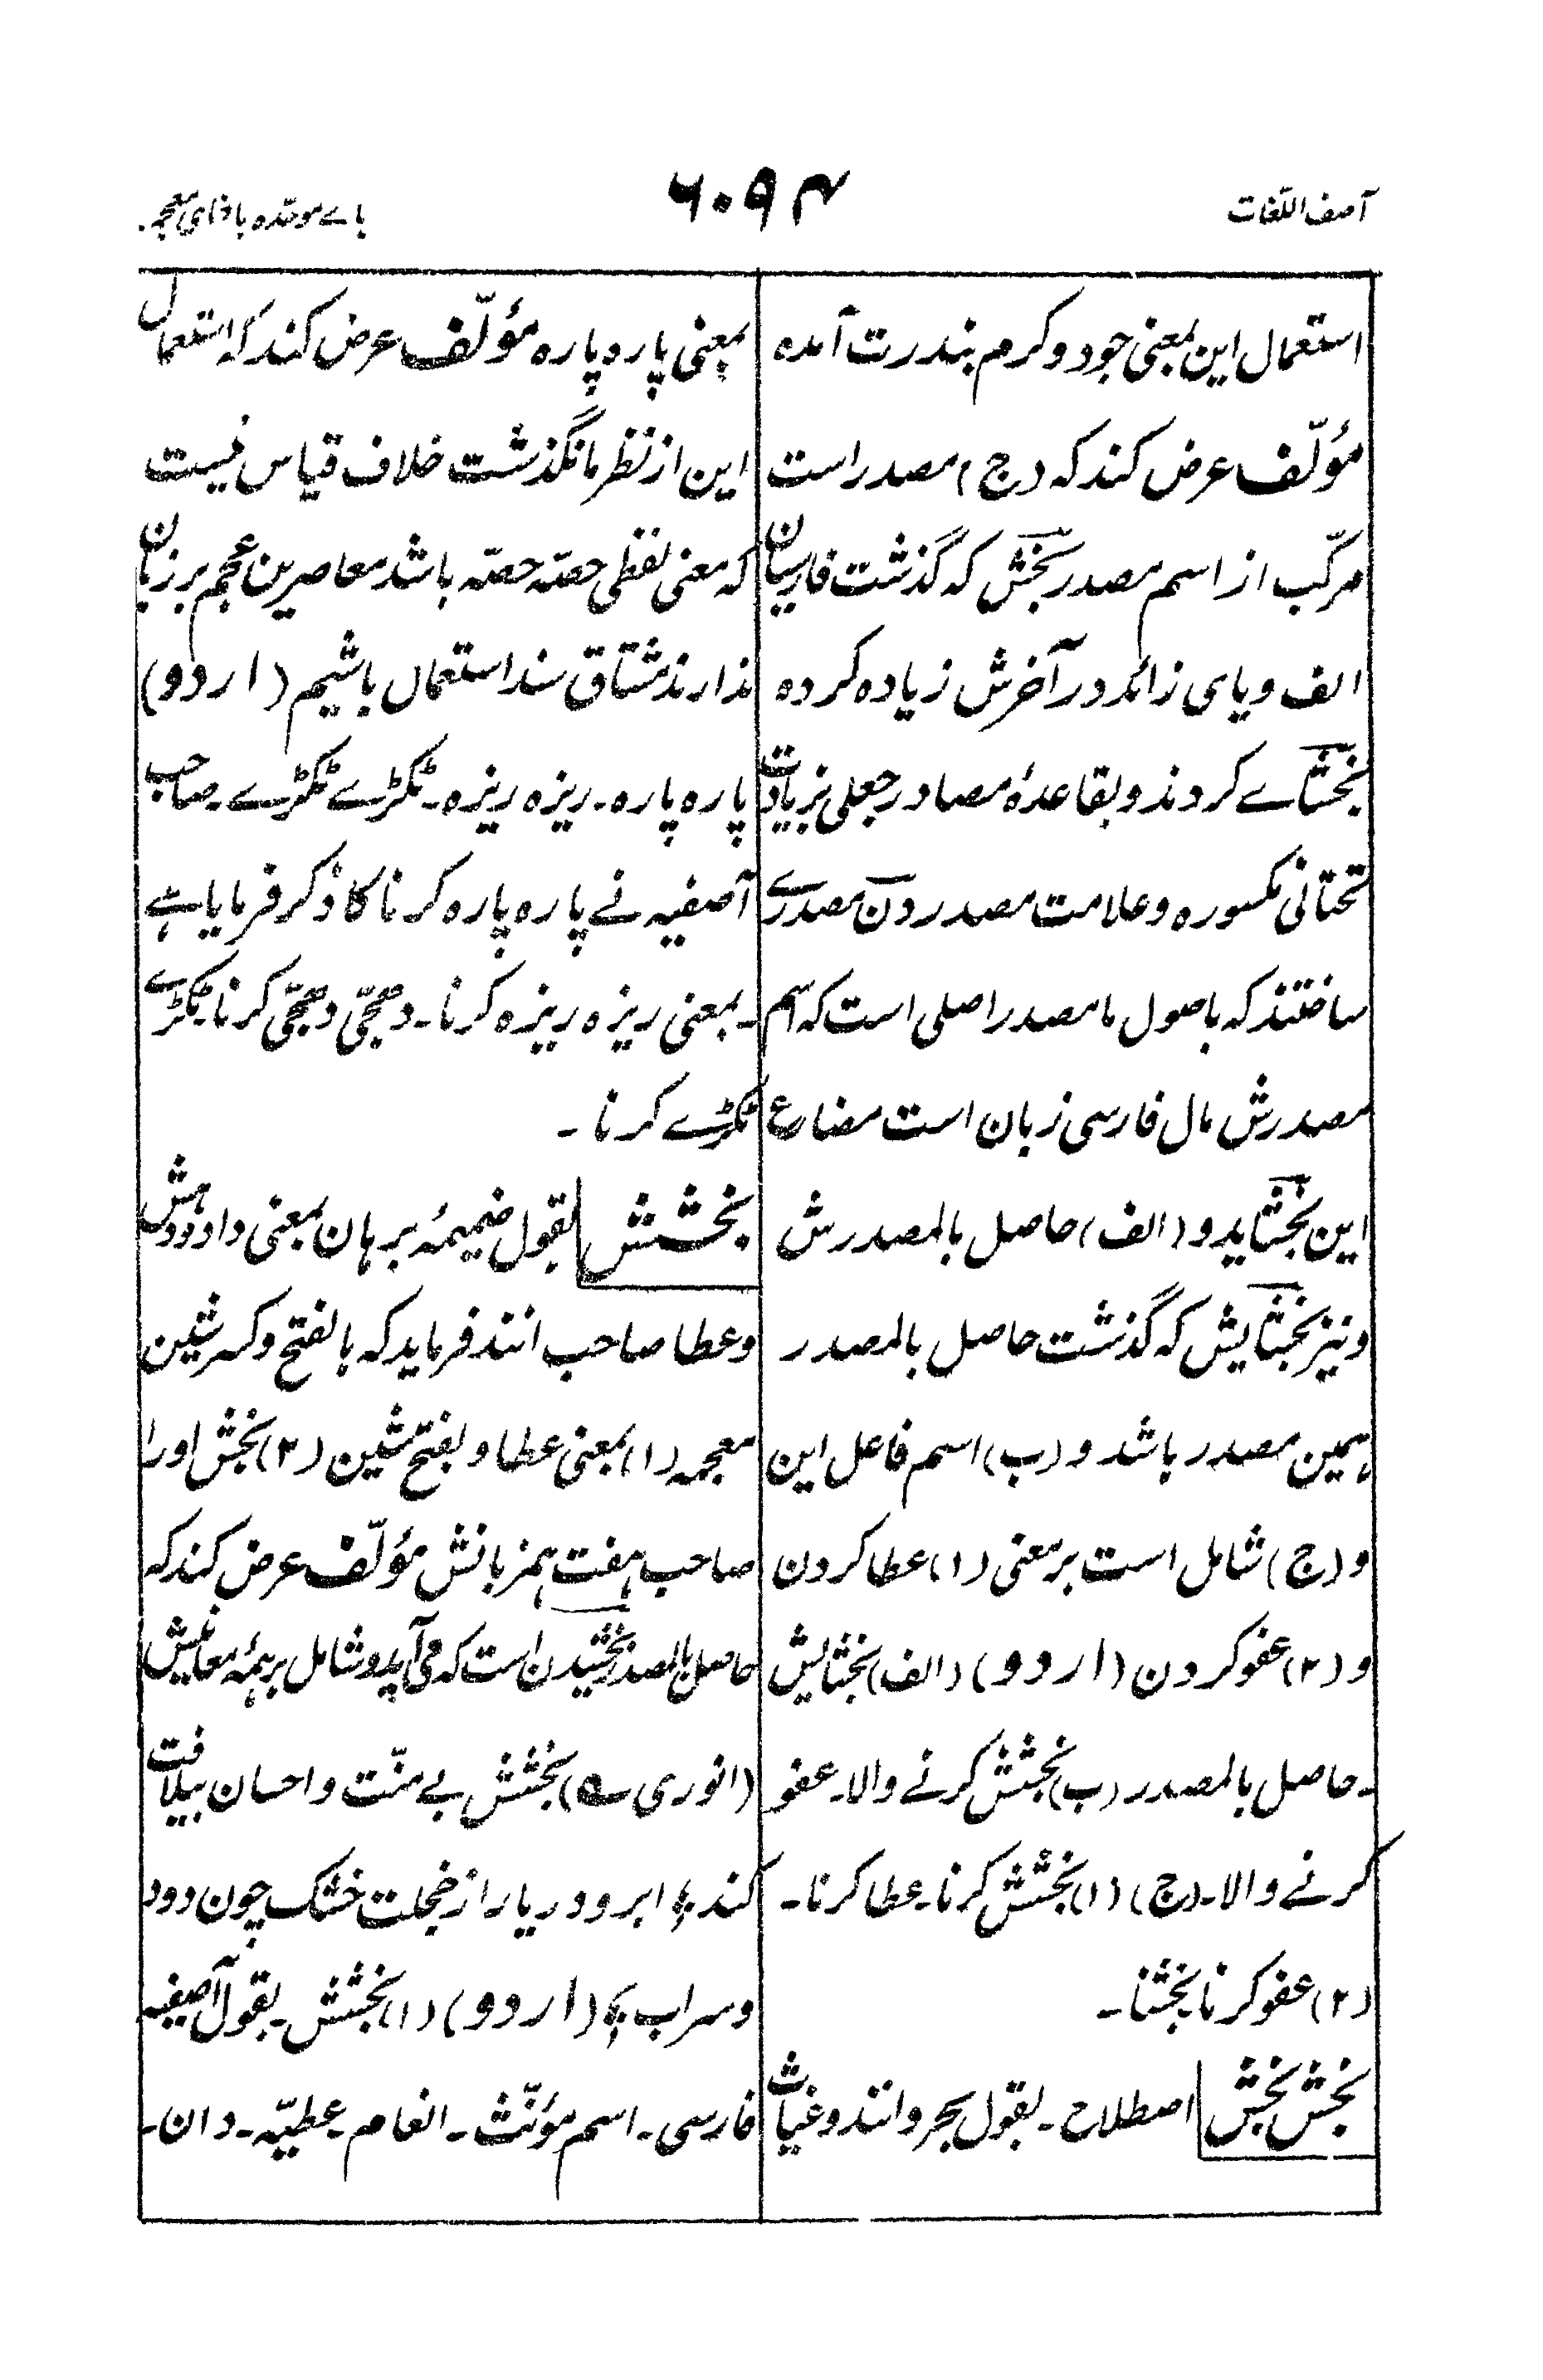 آصف اللغات
۶۰۹۴
باے موحّدہ باخای معجمہ.
استعمال این بمعنی جود و کرم بندرت آمدہ
مؤلّف عرض کند کہ (ج) مصدر است
مرکّب از اسم مصدر بخش کہ گذشت فارسیان
الف و یای زائد در آخرش زیادہ کردہ
بخشاے کردند و بقاعدۂ مصادر جعلی بزیادت
تحتانی مکسورہ و علامت مصدر دن مصدرے
ساختند کہ باصول ما مصدر اصلی است کہ اسم
مصدرش مال فارسی زبان است مضارع
این بخشاید و (الف) حاصل بالمصدرش
و نیز بخشایش کہ گذشت حاصل بالمصدر
ہمین مصدر باشد و (ب) اسم فاعل این
و (ج) شامل است بر معنی (۱) عطا کردن
و (۲) عفو کردن (اردو) (الف) بخشایش
۔ حاصل بالمصدر (ب) بخشش کرنے والا۔ عفو
کرنے والا۔ (ج) (۱) بخشش کرنا۔ عطا کرنا۔
(۲) عفو کرنا بخشنا۔
بخش بخش اصطلاح۔ بقول بحر و انند و غیاث
بمعنی پارہ پارہ مؤلّف عرض کند کہ استعمال
این از نظر ما نگذشت خلاف قیاس نیست
کہ معنی لفظی حصّہ حصّہ باشد معاصرین عجم بر زبان
ندارند مشتاق سند استعمال باشیم (اردو)
پارہ پارہ۔ ریزہ ریزہ۔ ٹکڑے ٹکڑے۔ صاحب
آصفیہ نے پارہ پارہ کرنا کا ذکر فرمایا ہے
۔ بمعنی ریزہ ریزہ کرنا۔ دھجّی دھجّی کرنا۔ ٹکڑے
ٹکڑے کرنا۔
بخشش بقول ضمیمۂ برہان بمعنی داد و دہش
و عطا صاحب انند فرماید کہ بالفتح و کسر شین
معجمہ (۱) بمعنی عطا و بفتح شین (۲) بخش اورا
صاحب ہفت ہمزبانش مؤلّف عرض کند کہ
حاصل بالمصدر بخشیدن است کہ می آید و شامل بر ہمۂ معانیش
(انوری ؎) بخشش بے منّت و احسان بیلافت
کند ؛ ابر و دریا را از خجلت خشک چون دود
و سراب ؛ (اردو) (۱) بخشش۔ بقول آصفیہ
فارسی۔ اسم مؤنّث۔ انعام۔ عطیّہ۔ دان۔